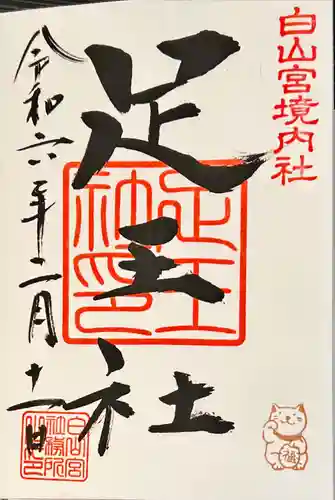 白山宮境内社
足王社
足王社神印
令和六年二月十一日
白山宮社務所之印
福